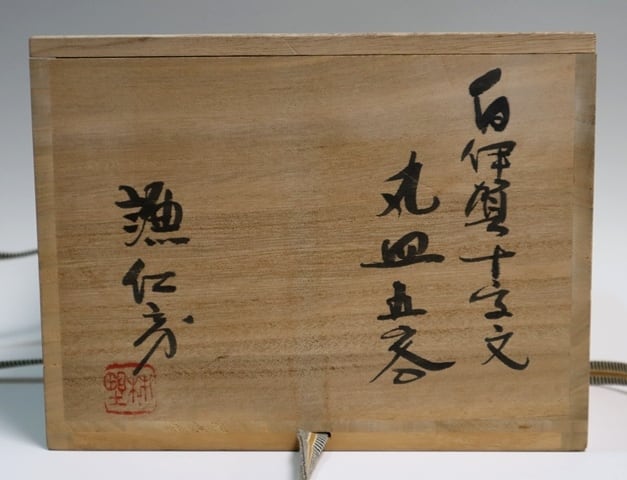 白伊賀十字文
丸皿五客
仁